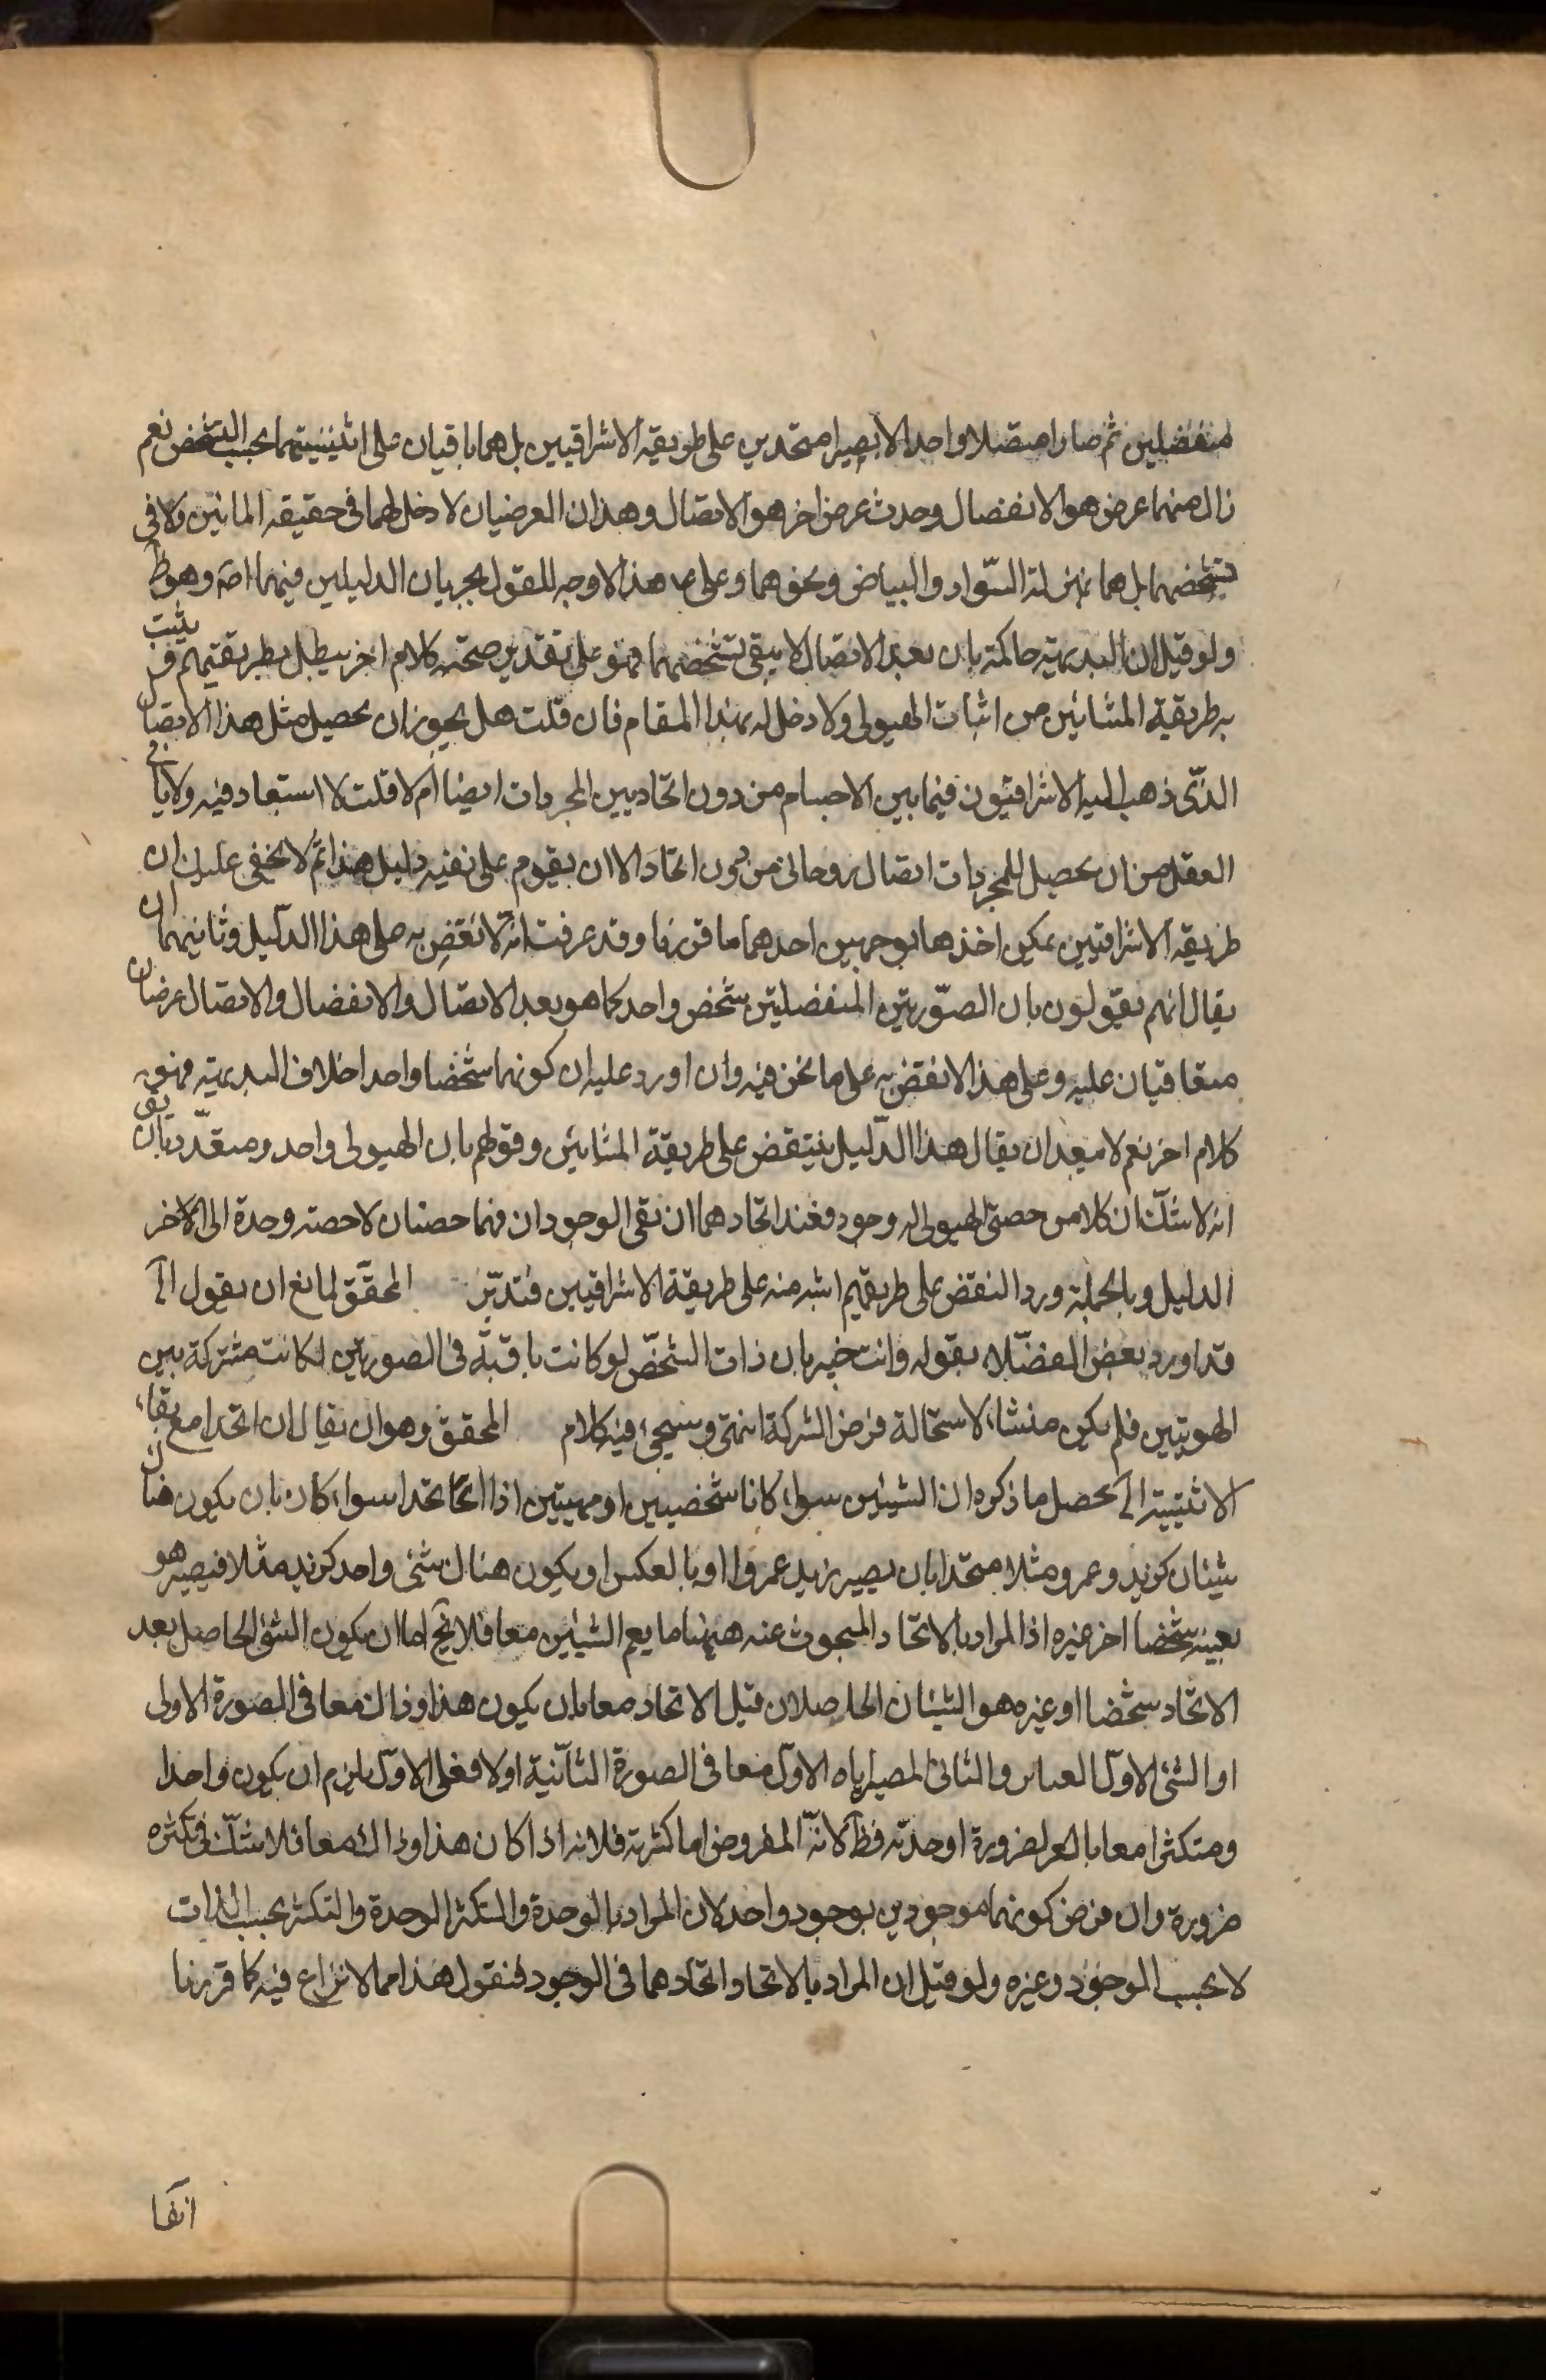 منفصلين ثم صارا متصلا واحدا لا يصيرا متحدين على طريقة الاشراقيين بل هما باقيان على اثنينيتهما بحسب التشخص نعم
زال منهما عرض هو الانفصال وحدث عرض اخر هو الاتصال وهذان العرضيان لا دخل لهما في حقيقة المائين ولا في
تشخصهما بل هما بمنزلة السواد والبياض ونحوهما وعلى هذا لا وجه للقول بجريان الدليلين فيهما اصه وهو ظ
ولو قيل ان البديهية حاكمة بان بعد الاتصال لا يبقى تشخصهما فهو على تقدير صحته كلام اخر يبطل بطريقتهم و يثبت
به طريقة المشائين من اثبات الهيولى ولا دخل له بهذا المقام فان قلت هل يجوز ان يحصل مثل هذا الاتصال
الذى ذهب اليه الاشراقيون فيما بين الاجسام من دون اتحاد بين المجردات ايضا ام لا قلت لا استبعاد فيه ولا يابى
العقل من ان يحصل للمجردات اتصال روحانى من دون اتحاد الا ان يقوم على نفيه دليل هذا ثم لا يخفى عليك ان
طريقة الاشراقيين يمكن اخذها بوجهين احدهما ما قررنا وقد عرفت انه لا نقض به على هذا الدليل وثانيهما ان
يقال انهم يقولون بان الصورتين المنفصلتين شخص واحد كما هو بعد الاتصال والانفصال والاتصال عرضان
متعاقبان عليه وعلى هذا لا نقض به على ما نحن فيه وان اورد عليه ان كونهما شخصا واحدا خلاف البديهية فهو
كلام اخر نعم لا يبعد ان يقال هذا الدليل ينتقض على طريقة المشائين وقولهم بان الهيولى واحد ومتعدد بان يق
انه لا شك ان كلا من حصتى الهيولى له وجود فعند اتحادهما ان بقى الوجودان فهما حصتان لا حصة وحدة الى الاخر
الدليل وبالجملة ورد النقض على طريقتهم اشد منه على طريقة الاشراقيين فتدبر المحقق لمانع ان يقول الخ
قد اورد بعض الفضلاء بقوله وانت خبير بان ذات الشخص لو كانت باقية في الصورتين لكانت مشتركة بين
الهويتين فلم يكن منشاء لاستحالة فرض الشركة انتهى وسيجئ فيه كلام المحقق وهو ان يقال ان اتحدا مع بقاء
الاثنينية الخ محصل ما ذكره ان الشيئين سواء كانا شخصيين او مهيتين اذا اتحدا سواء كان بان يكون هناك
شيئان كزيد وعمرو مثلا متحدا بان يصير زيد عمروا او بالعكس او يكون هناك شئ واحد كزيد مثلا فيصير هو
بعينه شخصا اخر غيره اذ المراد بالاتحاد المبحوث عنه ههنا ما يعم الشيئين معا فلا يخ اما ان يكون الشئ الحاصل بعد
الاتحاد شخصا او غيره هو الشيئان الحاصلان قبل الاتحاد معا بان يكون هذا وذاك معا في الصورة الاولى
او الشئ الاول والثانى المصير اياه الاول معا في الصورة الثانية او لا فعلى الاول يلزم ان يكون واحدا
ومتكثرا معا بالضرورة اما وحدته فظ لانه المفروض اما كثرته فلانه اذا كان هذا وذاك معا فلا شك في تكثره
ضرورة وان فرض كونهما موجودين بوجود واحد لان المراد بالوحدة والتكثر الوحدة والتكثر بحسب الذات
لا بحسب الوجود وغيره ولو قيل ان المراد بالاتحاد اتحادهما في الوجود فنقول هذا مما لا نزاع فيه كما قررنا
انفا